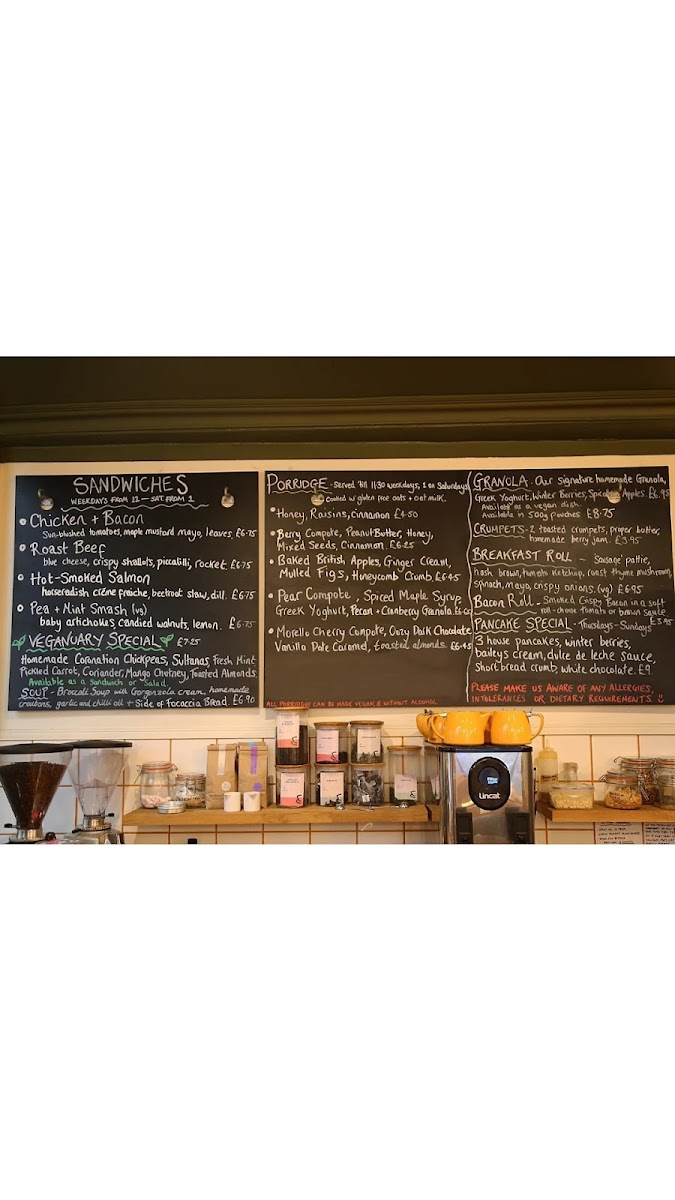 SANDWICHES
WEEKDAYS FROM 12 — SAT FROM 1
Chicken + Bacon
Sun-blushed tomatoes, maple mustard mayo, leaves £6.75
Roast Beef
blue cheese, crispy shallots, piccalilli, rocket £6.75
Hot-Smoked Salmon
horseradish créme fraiche, beetroot slaw, dill. £6.75
Pea + Mint Smash (vg)
baby artichokes, candied walnuts, lemon. £6.75
VEGANUARY SPECIAL £7.25
Homemade Coronation Chickpeas, Sultanas, Fresh Mint
Pickled Carrot, Coriander, Mango Chutney, Toasted Almonds.
Available as a Sandwich or Salad.
SOUP - Broccoli Soup with Gorgonzola cream, homemade
croutons, garlic and chilli oil + Side of Focaccia Bread. £6.90
PORRIDGE - Served till 11:30 weekdays, 1 on Saturdays
Cooked w/ gluten free oats + oat milk.
Honey, Raisins, Cinnamon £4.50
Berry Compote, Peanut Butter, Honey,
Mixed Seeds, Cinnamon. £6.25
Baked British Apples, Ginger Cream,
Mulled Figs, Honeycomb Crumb. £6.45
Pear Compote, Spiced Maple Syrup
Greek Yoghurt, Pecan + Cranberry Granola.
Morello Cherry Compote, Oozy Dark Chocolate
Vanilla Date Caramel, toasted almonds. £6.45
ALL PORRIDGES CAN BE MADE VEGAN, & WITHOUT ALCOHOL
GRANOLA - Our signature homemade Granola,
Greek Yoghurt, Winter Berries, Spiced Apples. £6.95
Available as a vegan dish.
Available in 500g pouches £8.75
CRUMPETS - 2 toasted crumpets, proper butter,
homemade berry jam. £3.95
BREAKFAST ROLL - 'Sausage' pattie,
hash brown, tomato ketchup, roast thyme mushroom,
spinach, mayo, crispy onions. (vg) £6.95
Bacon Roll - Smoked Crispy Bacon in a soft
roll - choose tomato or brown sauce
£5.95
PANCAKE SPECIAL - Thursdays - Sundays
3 house pancakes, winter berries,
baileys cream, dulce de leche sauce,
Shortbread crumb, white chocolate. £9
PLEASE MAKE US AWARE OF ANY ALLERGIES,
INTOLERANCES OR DIETARY REQUIREMENTS
Lincat